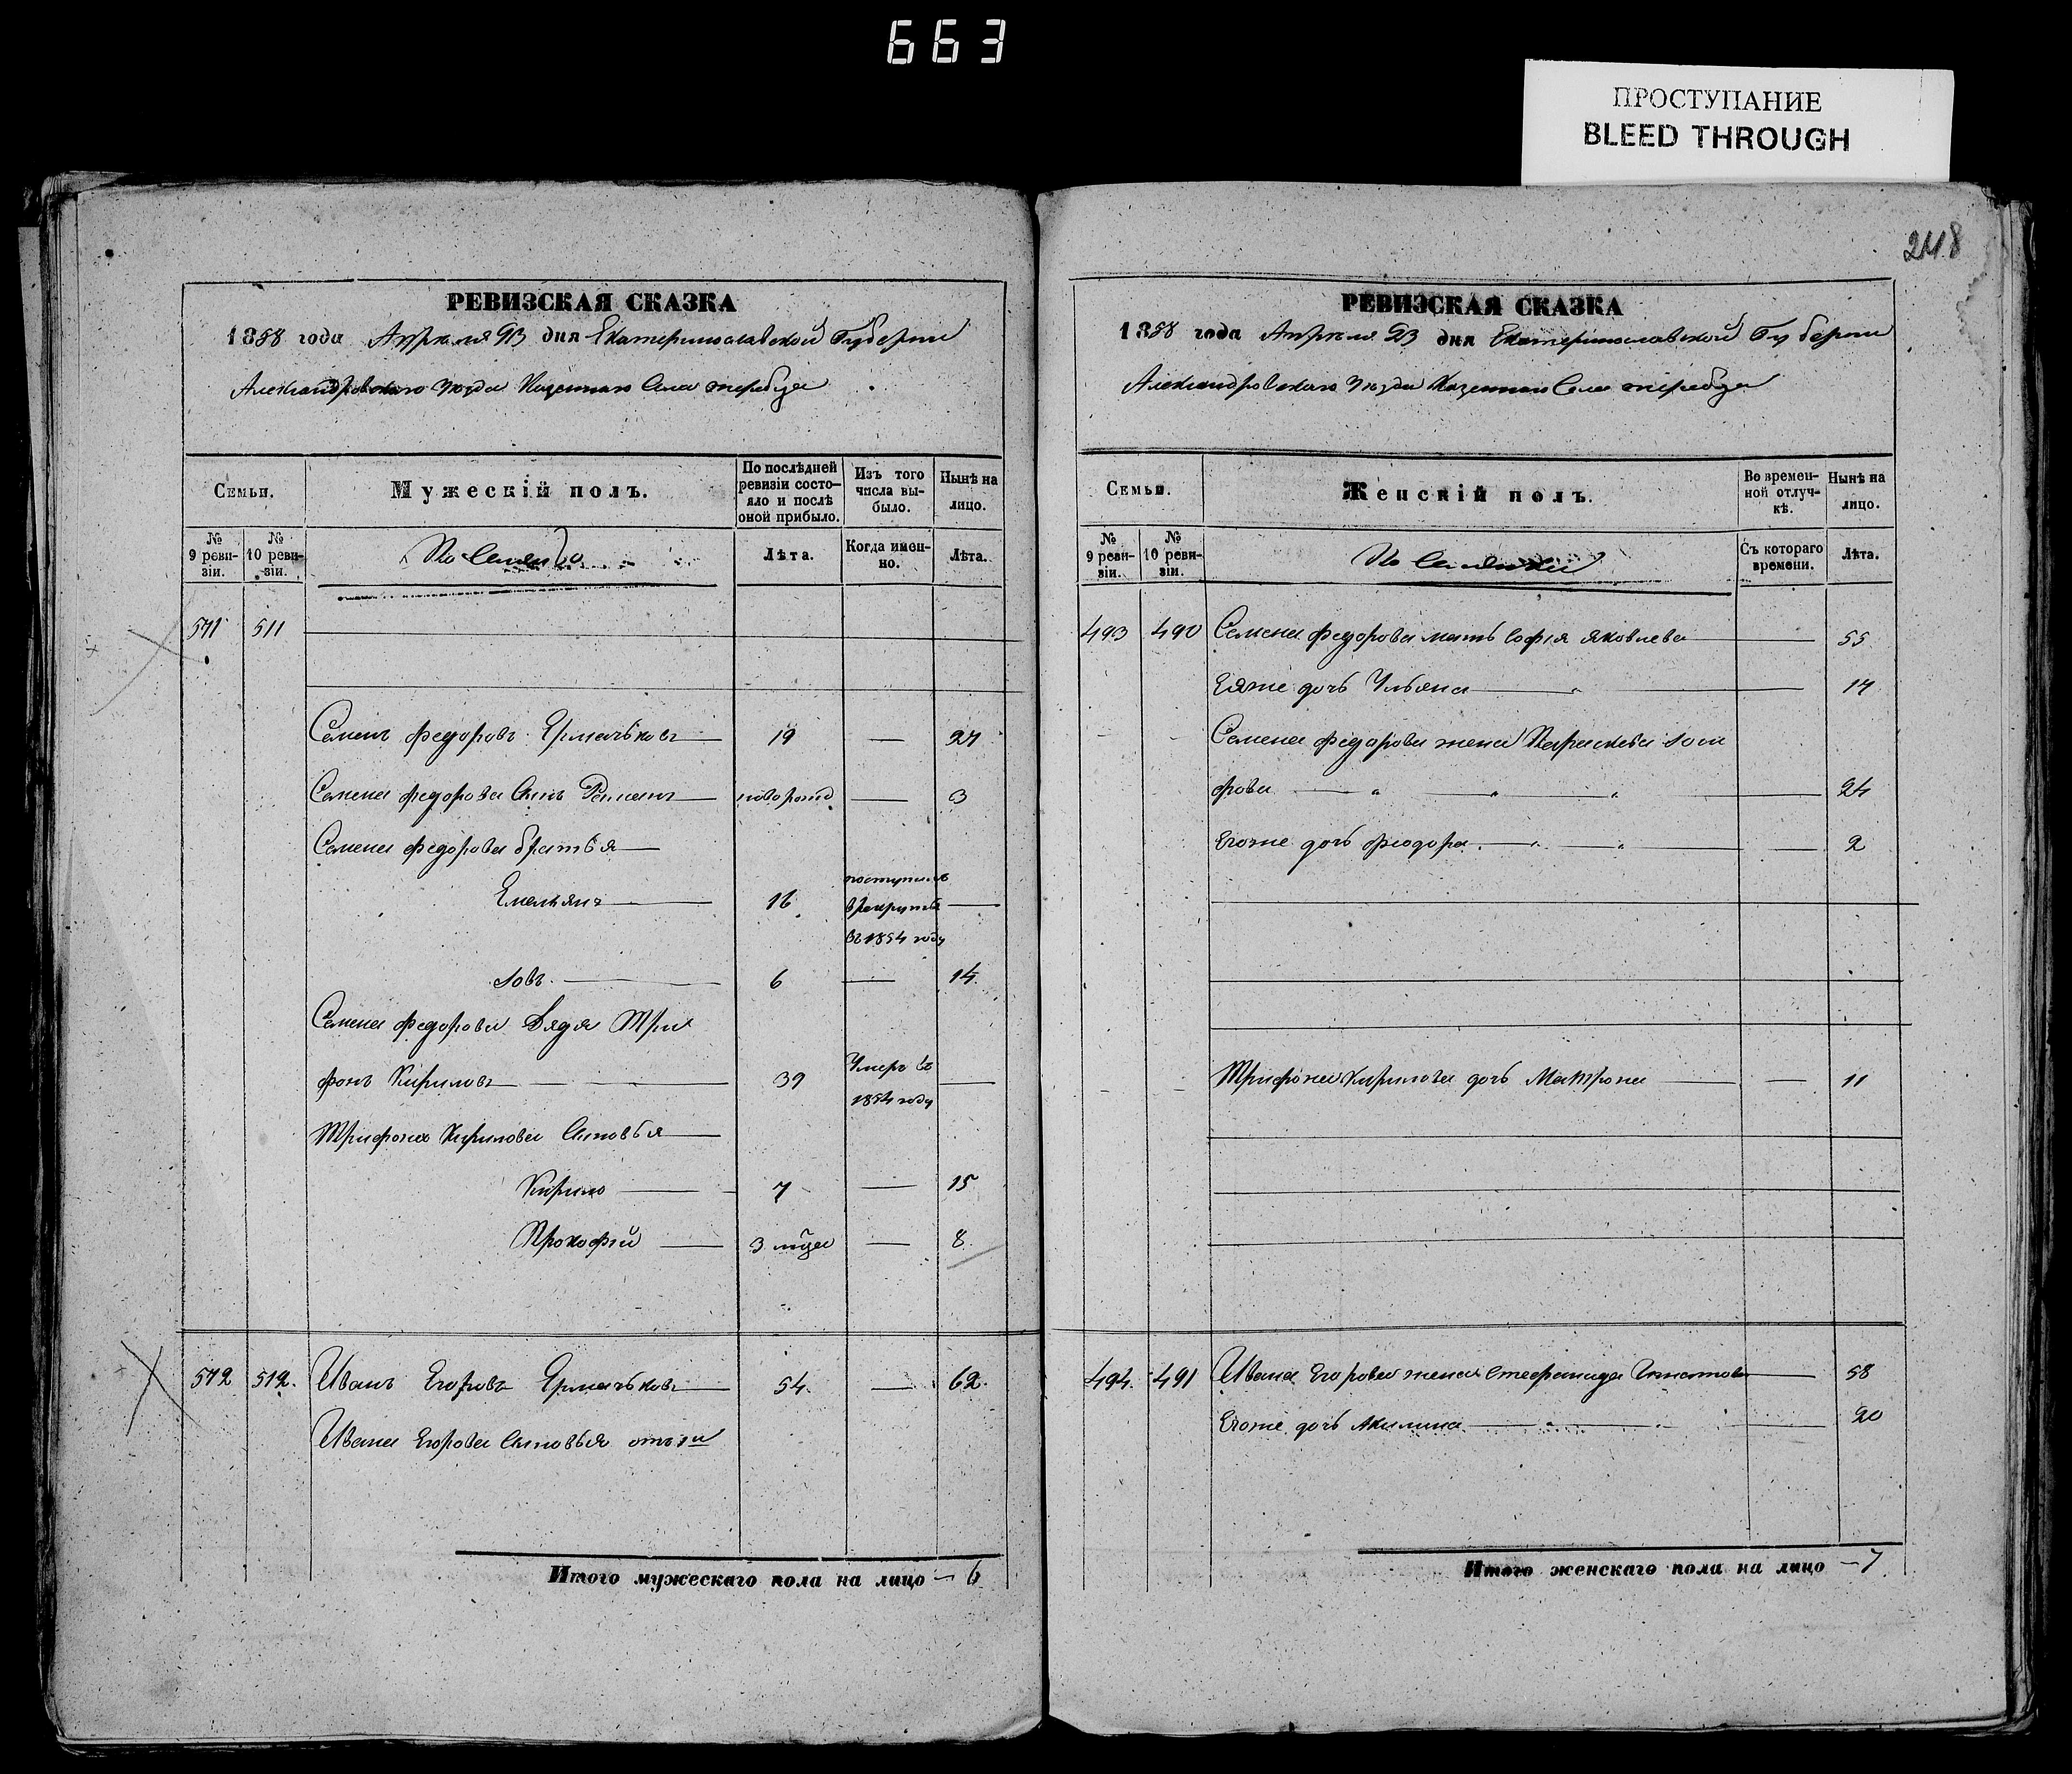 663
ПРОСТУПАНИЕ
BLEED THROUGH
248
РЕВИЗСКАЯ СКАЗКА
1858 года Апреля 23 дня Екатеринославской Губернии
Александровскаго Уезда Казеннаго Села
Семьи.
Мужескій полъ.
По послѣдней ревизіи состо-
яло и послѣ
оной прибыло.
Изъ того
числа вы-
было.
Нынѣ на
лицо.
№
9 реви-
зіи.
№
10 реви-
зіи.
Лѣта.
Когда имен-
но.
Лѣта.
571 511
Семенъ Федоровъ Ермачьковъ 19 — 27
Семена Федорова Сынъ Романъ новорожд — 3
Семена Федорова братья
Емельянъ 16 поступилъ
в рекруты
въ 1854 году
Іовъ 6 — 14
Семена Федорова Дядя Три
фонъ Кириловъ 39 Умеръ въ
1854 году
Трифона Кирилова Сыновья
Кирило 7 — 15
Прокофій 3 мѣца — 8
572 512 Иванъ Егоровъ Ермачьковъ 54 — 62
Ивана Егорова Сыновья отъ 1й
Итого мужескаго пола на лицо — 6
РЕВИЗСКАЯ СКАЗКА
1858 года Апреля 23 дня Екатеринославской Губернии
Александровскаго Уезда Казеннаго Села
Семьи.
Женскій полъ.
Во времен-
ной отлуч-
кѣ.
Нынѣ на
лицо.
№
9 реви-
зіи.
№
10 реви-
зіи.
Съ котораго
времени.
Лѣта.
493 490 Семена Федорова мать Софія Яковлева — 55
Еяже дочь Ульяна — 17
Семена Федорова жена Параскева
фрова — 24
Егоже дочь Феодора — 2
Трифона Кирилова дочь Матрона — 11
494 491 Ивана Егорова жена Стефанида — 58
Егоже дочь Акилина — 20
Итого женскаго пола на лицо — 7